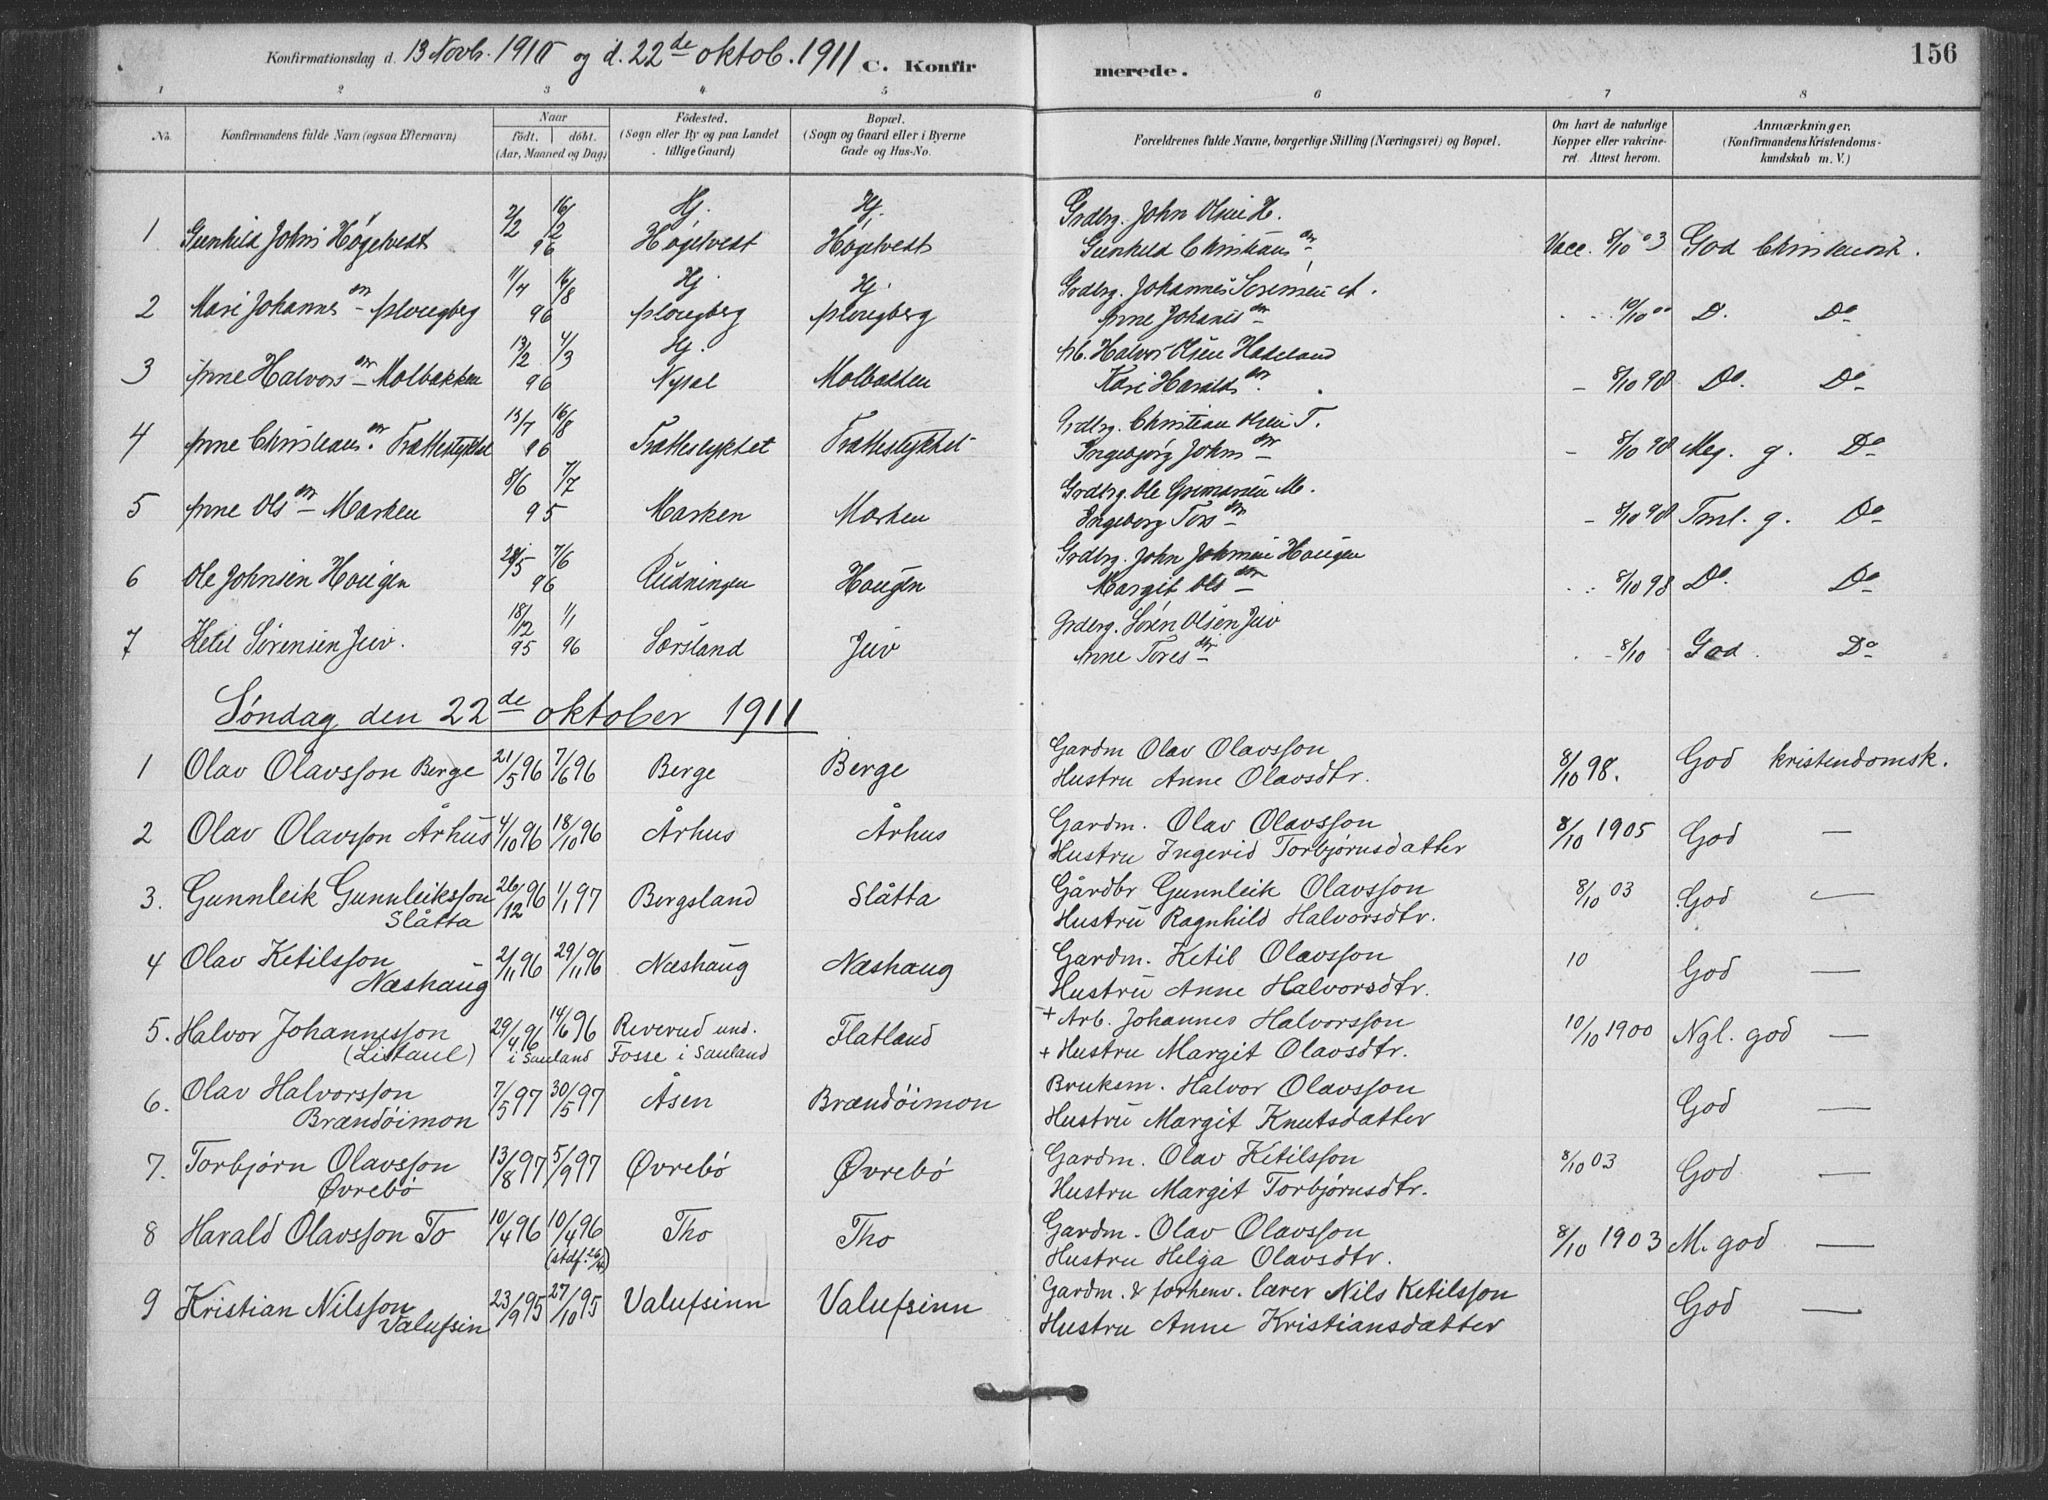 Konfirmationsdag d. 13 Novb. 1910 og d. 22de oktob. 1911 C. Konfirmerede. 156
1 2 3 4 5 6 7 8
No. Konfirmandens fulde Navn (ogsaa Efternavn) Naar født. døbt. (Aar, Maaned og Dag) Fødested. (Sogn eller By og paa Landet tillige Gaard) Bopæl. (Sogn og Gaard eller i Byerne Gade og Hus-No. Forældrenes fulde Navne, borgerlige Stilling (Næringsvei) og Bopæl. Om havt de naturlige Kopper eller vakcineret. Attest herom. Anmærkninger. (Konfirmandens Kristendomskundskab m. V.)
1 Gunhild Johns Høgetvest 2/2 16/2 96 Hj. Høgetvest Hj. Høgetvest Grdbr. John Olsen H. Gunhild Christians dtr Vacc. 8/10 03 God Christensk.
2 Mari Johannes dtr Aplougberg 11/4 16/8 96 Hj. Aplougberg Hj. Aplougberg Grdbr. Johannes Sørensen A. Anne Johanis dtr 10/10 00 D. Do
3 Anne Halvors dtr Molbakken 13/2 4/3 96 Hj. Nysæl Molbakken Arb. Halvor Olsen Hadeland Kari Haralds dtr. 8/10 98 Do. Do
4 Anne Christians dtr. Trættestykket 13/7 16/8 96 Trættestykket Trættestykket Grdbr. Christian Olsen T. Ingebjørg Johns dtr 8/10 98 Meg. g. Do
5 Anne Ols dtr Marken 8/6 7/7 95 Marken Marken Grdbr. Ole Grimasen M. Ingeborg Tors dtr 8/10 98 Tml. g. Do
6 Ole Johnsen Haugen 7/6 96 Rudningen Haugen Grdbr. John Johnsen Haugen Margit Ols dtr 8/10 98 D. Do
7 Ketil Sørensen Juv. 18/12 95 1/1 96 Sørsland Juv Grdbr. Søren Olsen Juv Anne Tores dtr 8/10 God. Do
Søndag den 22de oktober 1911
1 Olav Olavsson Berge 21/5 96 7/6 96 Berge Berge Gardm Olav Olavsson Hustru Anne Olavsdtr. 8/10 98. God kristendomsk.
2 Olav Olavsson Århus 4/10 96 18/10 96 Århus Århus Gardm. Olav Olavsson Hustru Ingerid Torbjørnsdatter 8/10 1905 God —
3. Gunnleik Gunnleiksson Slåtta 26/12 96 1/1 97 Bergsland Slåtta Gårdbr Gunnleik Olavsson Hustru Ragnhild Halvorsdtr. 8/10 03 God —
4 Olav Ketilsson Næshaug 2/11 96 29/11 96 Næshaug Næshaug Gardm. Ketil Olavsson Hustru Anne Halvorsdtr. 10 God —
5. Halvor Johannesson (Listaul) 29/4 96 14/6 96 i Sauland Reverud und. Fosse i Sauland Flatland + Arb. Johannes Halvorsson + Hustru Margit Olavsdtr. 10/10 1900 Ngl. god —
6. Olav Halvorsson Brændøimon 7/5 97 30/5 97 Åsen Brændøimon Bruksm. Halvor Olavsson Hustru Margit Knutsdatter God —
7. Torbjørn Olavsson Øvrebø 13/8 97 5/9 97 Øvrebø Øvrebø Gardm. Olav Ketilsson Hustru Margit Torbjørnsdtr. 8/10 03 God —
8 Harald Olavsson To 10/4 96 10/4 96 (stdf. 26/4) Tho Tho Gardm. Olav Olavsson Hustru Helga Olavsdtr. 8/10 1903 M. god —
9 Kristian Nilsson Valufsin 23/9 95 27/10 95 Valufsinn Valufsinn Gardm. & forhenv. lærer Nils Ketilsson Hustru Anne Kristiansdatter God —